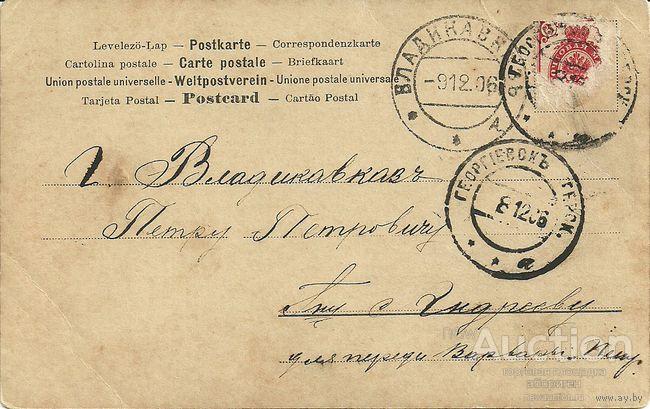 Levelező-Lap — Postkarte — Correspondenzkarte
Cartolina postale — Carte postale — Briefkaart
Union postale universelle — Weltpostverein — Unione postale universale
Tarjeta Postal — Postcard — Cartão Postal
ВЛАДИКАВК
-9 12.06
ГЕОРГІЕВСКЪ ТЕРСК.
8 12 06
а
г. Владикавказъ
Петру Петровичу
Андрееву
для переди Варвары Петр.
Auction
торговая площадка
www.ay.by